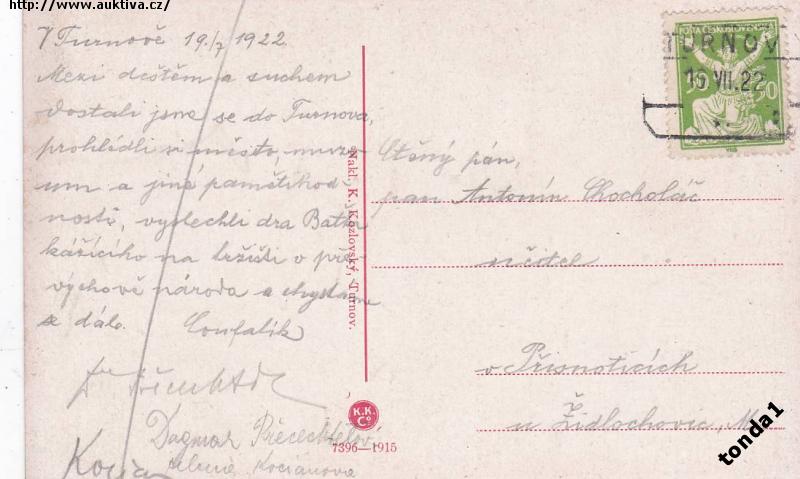 http://www.auktiva.cz/
V Turnově 19./7 1922.
Mezi deštěm a suchem
dostali jsme se do Turnova,
prohlédli si město, muze-
um a jiné pamětihod-
nosti, vyslechli dra Baťka
kážícího na tržišti o pře-
výchově národa a chystáme
se dále. Coufalík
Dagmar Přecechtělová
Kocianova
Nakl. K. Kozlovský, Turnov.
K.K.
Co
7396—1915
POŠTA ČESKOSLOVENSKÁ
20 20
TURNOV
VII.22
Ctěný pán,
pan Antonín Chocholáč
učitel
v Přisnoticích
u Židlochovic, M
tonda1